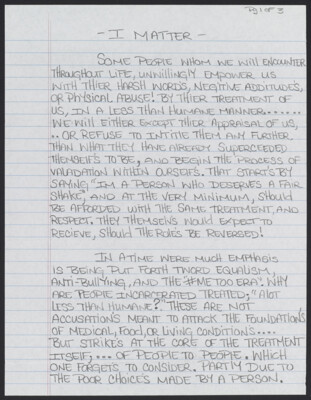 Pg 1 of 3
- I MATTER -
SOME PEOPLE WHOM WE WILL ENCOUNTER
THROUGHOUT LIFE, UNWILLINGLY EMPOWER US
WITH THIER HARSH WORDS, NEGITIVE ADDITUDES,
OR PHYSICAL ABUSE! BY THIER TREATMENT OF
US, IN A LESS THAN HUMANE MANNER......
WE WILL EITHER EXCEPT THIER APPRAISAL OF US,
.. OR REFUSE TO INTITLE THEM ANY FURTHER.
THAN WHAT THEY HAVE ALREADY SUPERCEEDED
THEMSELFS TO BE, AND BEGIN THE PROCESS OF
VALADATION WITHIN OURSELFS. THAT STARTS BY
SAYING, "IM A PERSON WHO DESERVES A FAIR
SHAKE", AND AT THE VERY MINIMUM, SHOULD
BE AFFORDED WITH THE SAME TREATMENT AND
RESPECT. THEY THEMSELVS WOULD EXPECT TO
RECIEVE, SHOULD THE ROLES BE REVERSED!
IN A TIME WERE MUCH EMPHASIS
IS BEING PUT FORTH TWORD EQUALISM,
ANTI-BULLYING, AND THE "#METOO ERA". WHY
ARE PEOPLE INCARCERATED TREATED; "ALOT
LESS THAN HUMANE?" THESE ARE NOT
ACCUSATIONS MEANT TO ATTACK THE FOUNDATIONS
OF MEDICAL, FOOD, OR LIVING CONDITIONS....
BUT STRIKES AT THE CORE OF THE TREATMENT
ITSELF;... OF PEOPLE TO PEOPLE. WHICH
ONE FORGETS TO CONSIDER. PARTLY DUE TO
THE POOR CHOICES MADE BY A PERSON.